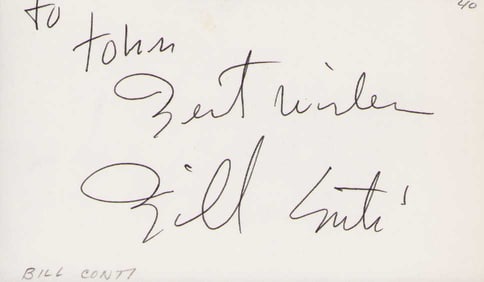 40
To
John
Best wishes
Bill Conti
BILL CONTI